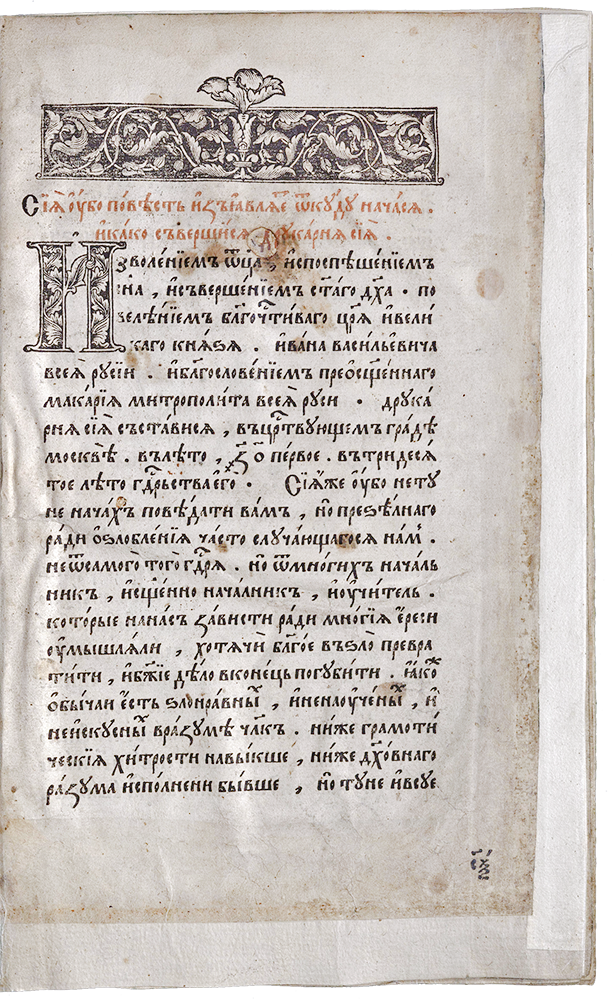 Сїѧ̀ ᲂу҆́бо по́вѣсть и҆з̾ꙗвлѧ́етъ ѿкꙋ́дꙋ нача́сѧ .
и҆ка́ко съверши́сѧ дрꙋка́рнѧ сїѧ̀ .
И҆зволе́нїемъ ѿц҃а , и҆споспѣше́нїемъ
сн҃а , и҆съверше́нїемъ ст҃а́го дх҃а · по
велѣ́нїемъ бл҃гоч҇ти́ваго цр҃ѧ̀ и҆вели
каго кнѧ́зѧ . и҆ва́на васи́льевича
всеѧ̀ рꙋсїи . и҆бл҃гослове́нїемъ преѡ҆сщ҃е́ннаго
мака́рїѧ митрополи́та всеѧ̀ рꙋси · дрꙋка́
рнѧ сїѧ̀ съста́висѧ , въцр҇ствꙋющемъ гра́дѣ
москвѣ̀ . влѣ́то , ꙁ҃о пе́рвое . втридесѧ́
тое лѣ́то гд҇рьства е҆гѡ̀ · Сїѧ́же ᲂу҆́бо нетꙋ́
не нача́хъ повѣ́дати ва́мъ , но҆ презѣ́лнаго
ра́ди ѻ҆зло́бленїѧ ча́сто слꙋча́ющагосѧ на́мъ .
неѿсамого̀ того̀ гд҇рѧ . но҆ ѿмно́гихъ нача́ль
никъ , и҆сщ҃е́нно нача́лникъ , и҆ᲂу҆чи́тель .
кото́рые нана́съ за́висти ра́ди мно́гїѧ є҆́реси
ᲂу҆мышлѧ́ли , хотѧ́чи бл҃го́е въ зло̀ превра
ти́ти , и҆бж҃їе дѣ́ло вконе́цъ погꙋби́ти . ꙗ҆́коⷤ
ѻ҆бы́чаи є҆́сть злонра́вныⷯ , и҆ненаᲂу҆че́ныⷯ , и҆
неи҆скꙋ́сныⷯ вра́зꙋмѣ чл҃къ . ни́же грамоти́
ческїѧ хи́трости навы́кше , ни́же дх҃о́внаго
ра́зꙋма и҆спо́лнени бы́вше , но҆ тꙋ́не и҆всꙋ́е